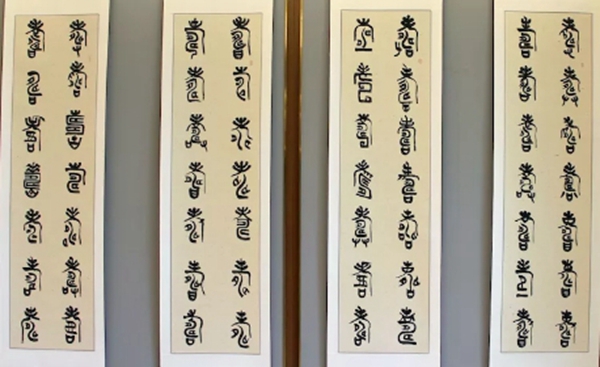 壽壽壽壽壽壽壽
壽壽壽壽壽壽壽
壽壽壽壽壽壽壽
壽壽壽壽壽壽壽
壽壽壽壽壽壽壽
壽壽壽壽壽壽壽
壽壽壽壽壽壽壽
壽壽壽壽壽壽壽